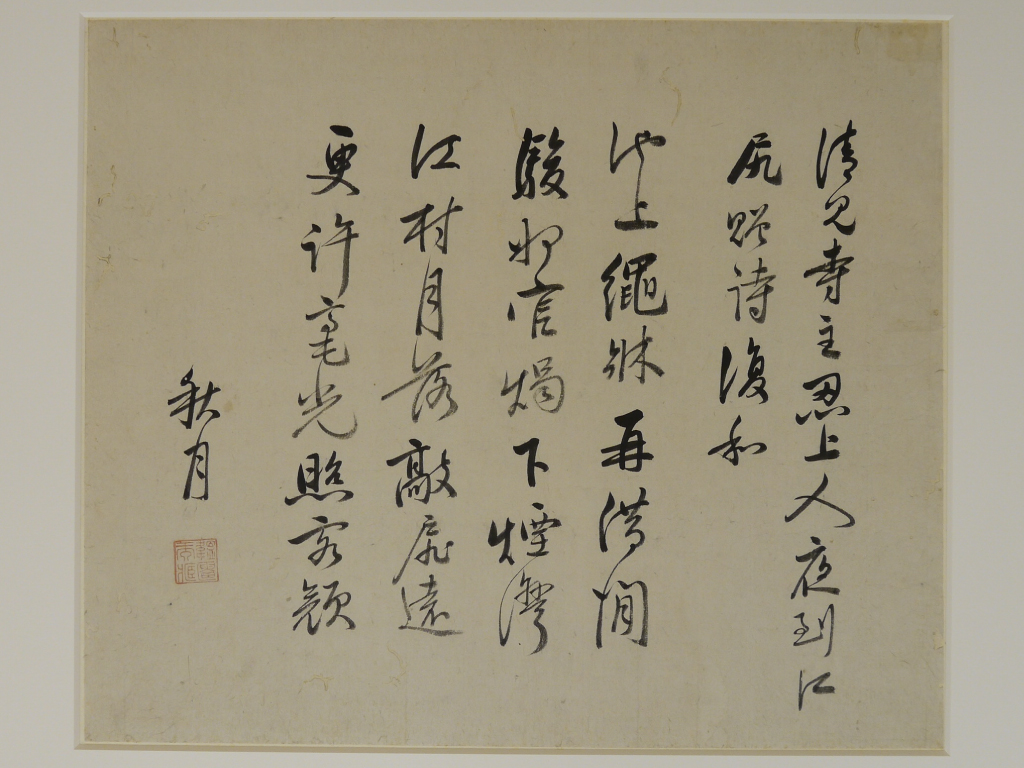 清見寺主忍上人夜到江
尻贈詩復和
池上繩牀再借閒
駸如官燭下煙灣
江村月落敲扉遠
更許毫光照客顏
秋月